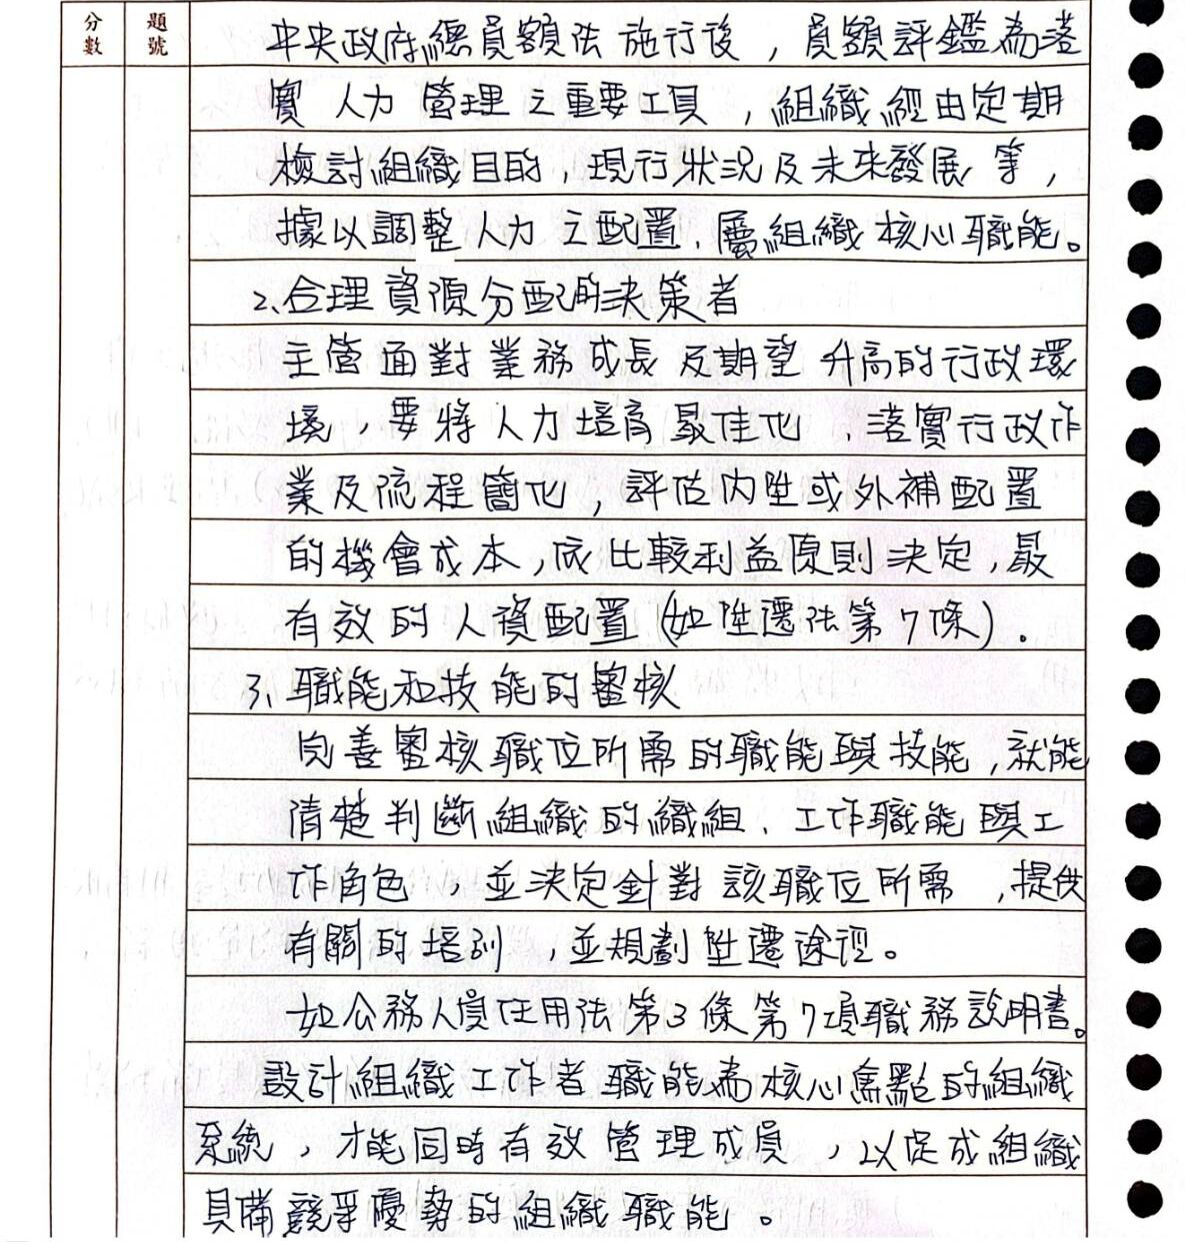 分數 題號
中央政府總員額法施行後，員額評鑑為落
實人力管理之重要工具，組織經由定期
檢討組織目的，現行狀況及未來發展等，
據以調整人力之配置、屬組織核心職能。
2、合理資源分配的決策者
主管面對業務成長及期望升高的行政環
境，要將人力培育最佳化、落實行政作
業及流程簡化，評估內陞或外補配置
的機會成本，依比較利益原則決定，最
有效的人資配置(如陞遷法第7條)。
3、職能和技能的審核
完善審核職位所需的職能與技能，就能
清楚判斷組織的織組、工作職能與工
作角色，並決定針對該職位所需，提供
有關的培訓，並規劃陞遷途徑。
如公務人員任用法第3條第7項職務說明書。
設計組織工作者職能為核心焦點的組織
系統，才能同時有效管理成員，以促成組織
具備競爭優勢的組織職能。